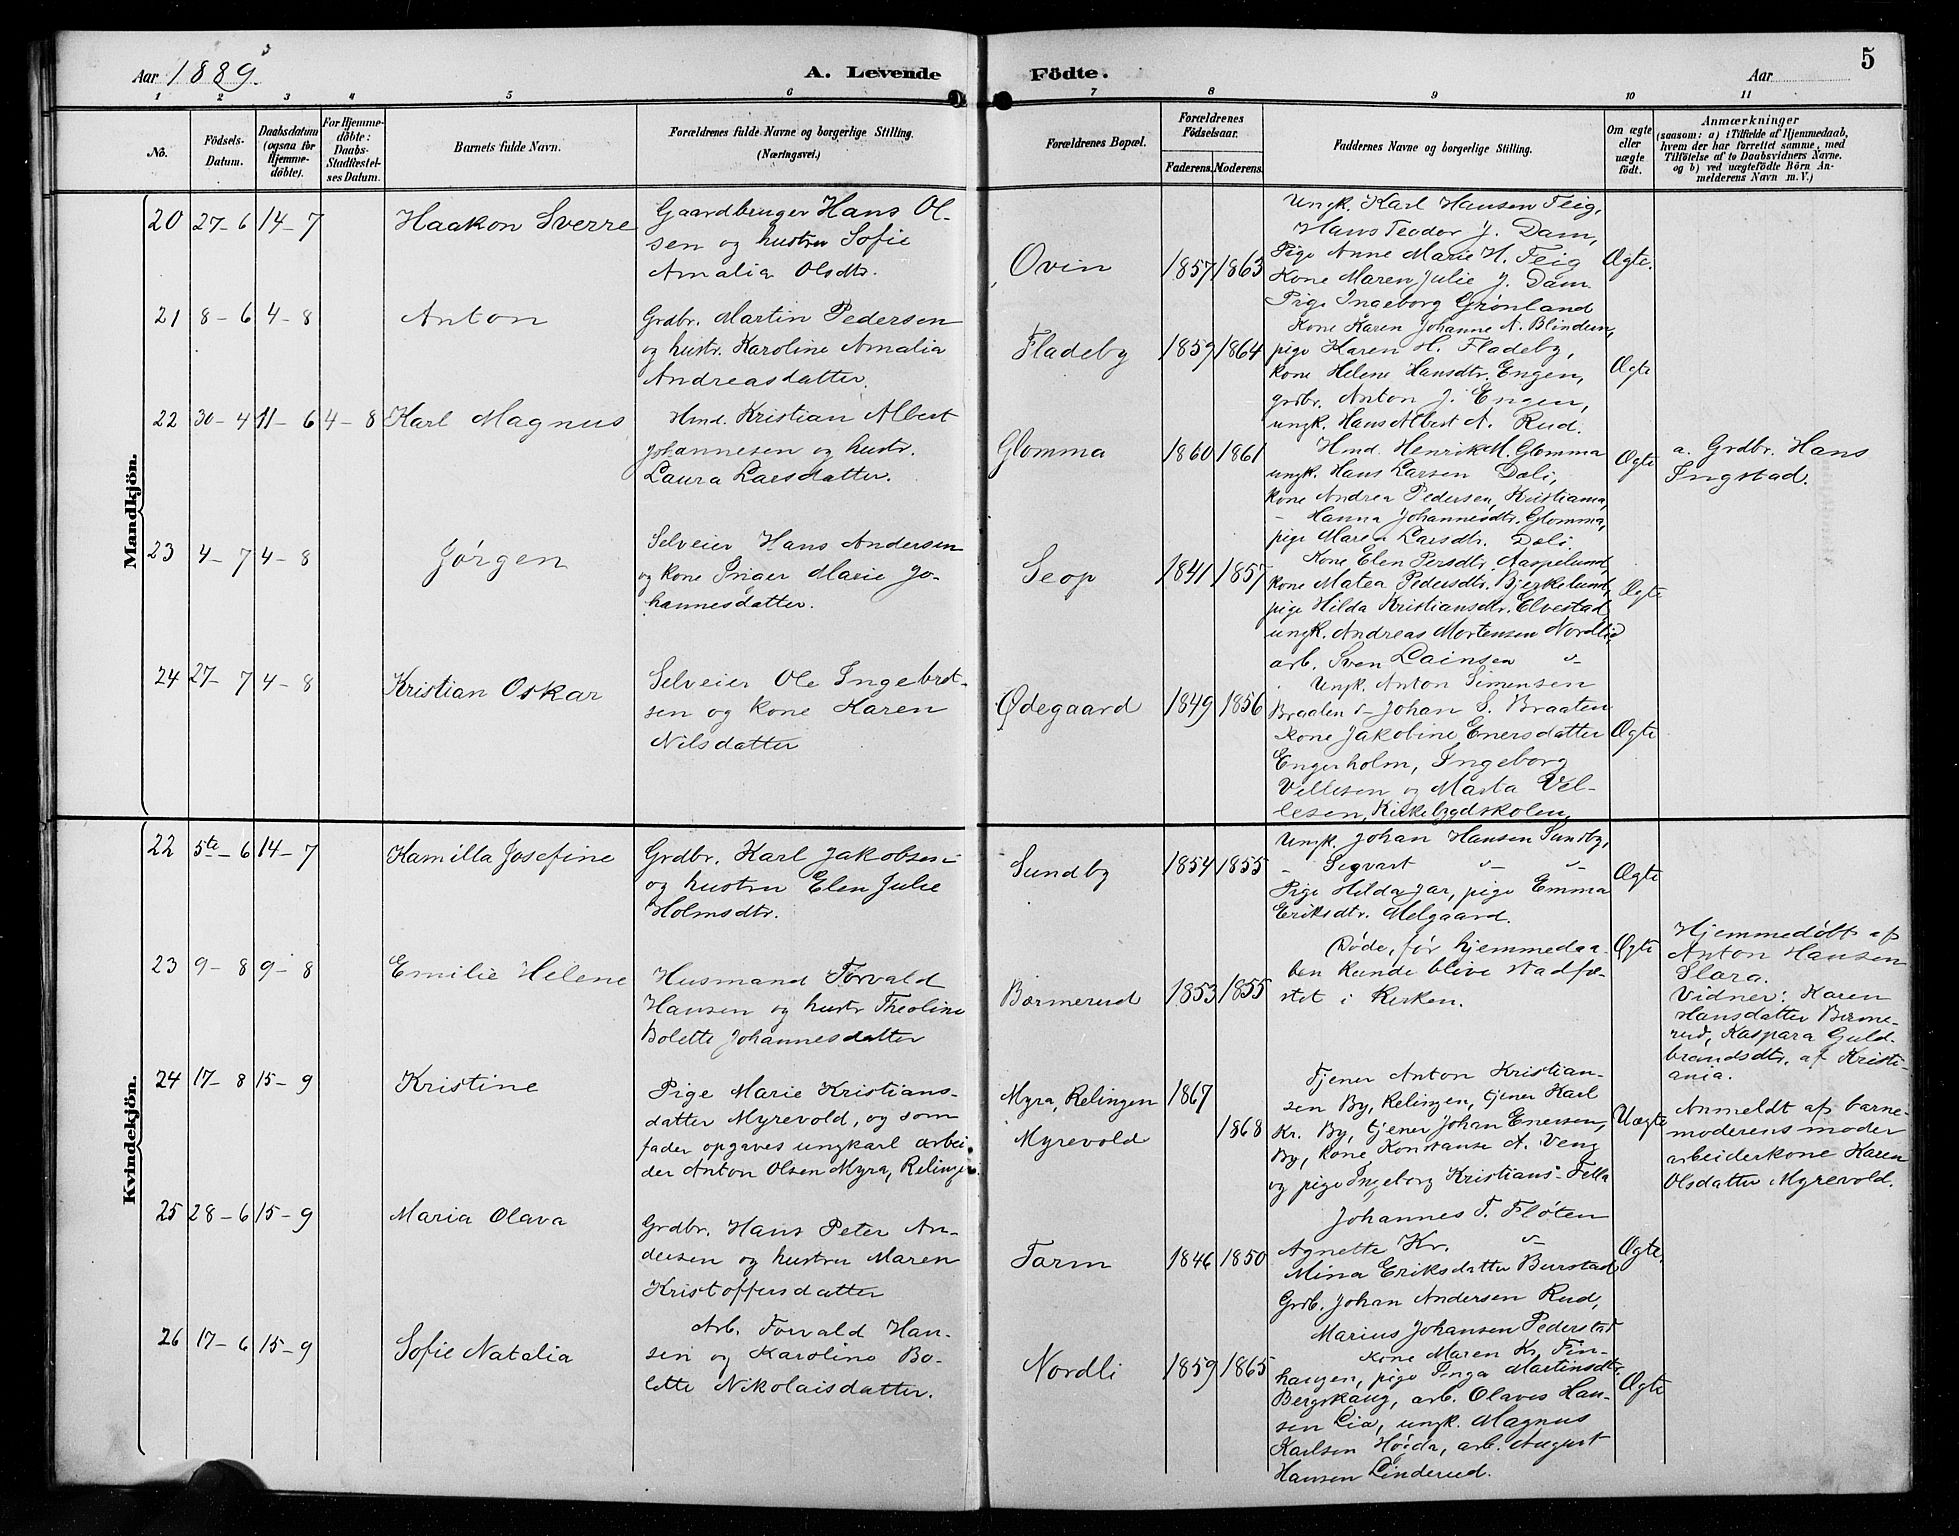 Aar 1889
A. Levende
Födte.
Aar
5
1 2 3 4 5 6 7 8 9 10 11
No.
Födsels-
Datum.
Daabsdatum
(ogsaa for
Hjemme-
döbte).
For Hjemme-
döbte:
Daabs-
Stadfestel-
ses Datum.
Barnets fulde Navn.
Forældrenes fulde Navne og borgerlige Stilling.
(Næringsvei.)
Forældrenes Bopæl.
Forældrenes
Födselsaar.
Faderens. Moderens.
Faddernes Navne og borgerlige Stilling.
Om ægte
eller
uægte
födt.
Anmærkninger
(saasom: a) i Tilfælde af Hjemmedaab,
hvem der har forrettet samme, med
Tilföielse af to Daabsvidners Navne.
og b) ved uægtefödte Börn An-
melderens Navn m. V.)
Mandkjön.
20 27-6 14-7
Haakon Sverre
Gaardbruger Hans Ol-
sen og hustru Sofie
Amalia Olsdtr.
Ovin
1857 1863
Ungk. Karl Hansen Teig,
Hans Teodor J. Dam,
Pige Anne Marie H. Teig
Kone Maren Julie J. Dam
Pige Ingeborg Grønland
Ægte.
21 8-6 4-8
Anton
Grdbr. Martin Pedersen
og hustr. Karoline Amalia
Andreasdatter.
Fladeby
1859 1864
Kone Karen Johanne A. Blindern,
pige Karen H. Fladeby,
kone Helene Hansdtr. Engen,
grdbr. Anton J. Engen,
ungk. Hans Albert A. Rud.
Ægte
22 30-4 11-6 4-8
Karl Magnus
Hmd. Kristian Albert
Johannesen og hustr.
Laura Larsdatter.
Glomma
1860 1861
Hmd. Henrik M. Glomma
ungk. Hans Larsen Dæli,
kone Andrea Pedersen, Kristiania,
- Hanna Johannesdtr. Glomma,
pige Maren Larsdtr. Dæli
Ægte
a. Grdbr. Hans
Ingstad.
23 4-7 4-8
Jørgen
Selveier Hans Andersen
og kone Inger Marie Jo-
hannesdatter.
Seop
1841 1857
Kone Elen Persdtr. Aaspelund
kone Matea Pedersdtr. Bjerkelund,
pige Hilda Kristiansdtr. Elvestad,
ungk. Andreas Mortensen Nordlie
arb. Sven Lainsen "
Ægte
24 27-7 4-8
Kristian Oskar
Selveier Ole Ingebret-
sen og kone Karen
Nilsdatter
Ødegaard
1849 1856
Ungk. Anton Simensen
Braaten " Johan S. Braaten
Kone Jakobine Enersdatter
Engerholm, Ingeborg
Villesen og Marta Vel-
lesen, Kirkebygdskolen
Ægte
Kvindekjön.
22 5te-6 14-7
Kamilla Josefine
Grdbr. Karl Jakobsen
og hustru Elen Julie
Holmsdtr.
Sundby
1854 1855
Ungk. Johan Hansen Sundby,
- Sigvart " "
Pige Hilda Jar, pige Emma
Eriksdtr. Melgaard.
Ægte
23 9-8 9-8
Emilie Helene
Husmand Torvald
Hansen og hustr Theoline
Bolette Johannesdatter
Bærmerud
1853 1855
Døde, før hjemmedaa-
ben kunde blive stadfæ-
stet i Kirken.
Ægte
Hjemmedøbt af
Anton Hansen
Slara.
Vidner: Karen
Hansdatter Bærme-
rud, Kaspara Guld-
brandsdtr. af Kristi-
ania.
24 17-8 15-9
Kristine
Pige Marie Kristians-
datter Myrevold, og som
fader opgaves ungkarl arbei-
der Anton Olsen Myra, Relingen.
Myra, Relingen
Myrevold
1867
1868
Tjener Anton Kristian-
sen By, Relingen, tjener Karl
Kr. By, tjener Johan Enersen,
By, kone Konstanse A. Veng
og pige Ingeborg Kristians- Fella
Uægte
Anmeldt af barne-
moderens moder
arbeiderkone Karen
Olsdatter Myrevold.
25 28-6 15-9
Maria Olava
Grdbr. Hans Peter An-
dersen og hustru Maren
Kristoffersdatter
Tarm
1846 1850
Johannes T. Fløten
Agnette Kr. "
Mina Eriksdatter Burstad
Grdb. Johan Andersen Rud,
Marius Johansen Pederstad
Ægte.
26 17-6 15-9
Sofie Natalia
Arb. Torvald Han-
sen og Karoline Bo-
lette Nikolaisdatter.
Nordli
1859 1865
Kone Maren Kr. Fin-
haugen, pige Inga Martinsdtr.
Bergskaug, arb. Olaves Han-
sen Lia, ungk. Magnus
Karlsen Høida, arb. August
Hansen Linderud.
Ægte